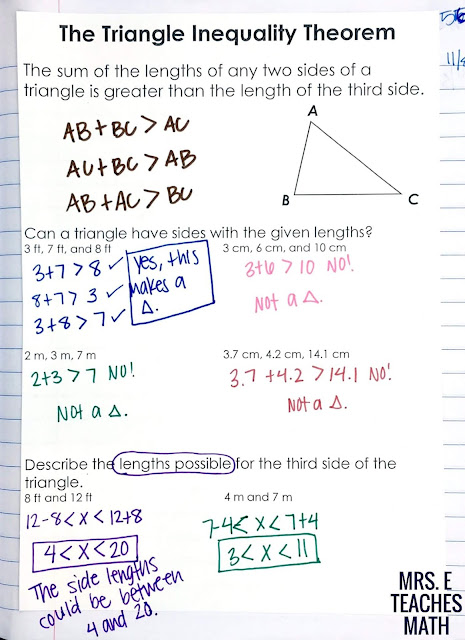 The Triangle Inequality Theorem
The sum of the lengths of any two sides of a
triangle is greater than the length of the third side.
AB+BC > AC
AC+BC > AB
AB+AC > BC
A
B
C
Can a triangle have sides with the given lengths?
3 ft, 7 ft, and 8 ft
3+7 > 8 ✓
8+7 > 3 ✓
3+8 > 7 ✓
Yes, this
makes a
Δ.
3 cm, 6 cm, and 10 cm
3+6 > 10 NO!
Not a Δ.
2 m, 3 m, 7 m
2+3 > 7 NO!
Not a Δ.
3.7 cm, 4.2 cm, 14.1 cm
3.7 +4.2 > 14.1 NO!
Not a Δ.
Describe the lengths possible for the third side of the
triangle.
8 ft and 12 ft
12-8 < x < 12+8
4 < x < 20
The side lengths
could be between
4 and 20.
4 m and 7 m
7-4 < x < 7+4
3 < x < 11
MRS. E
TEACHES
MATH